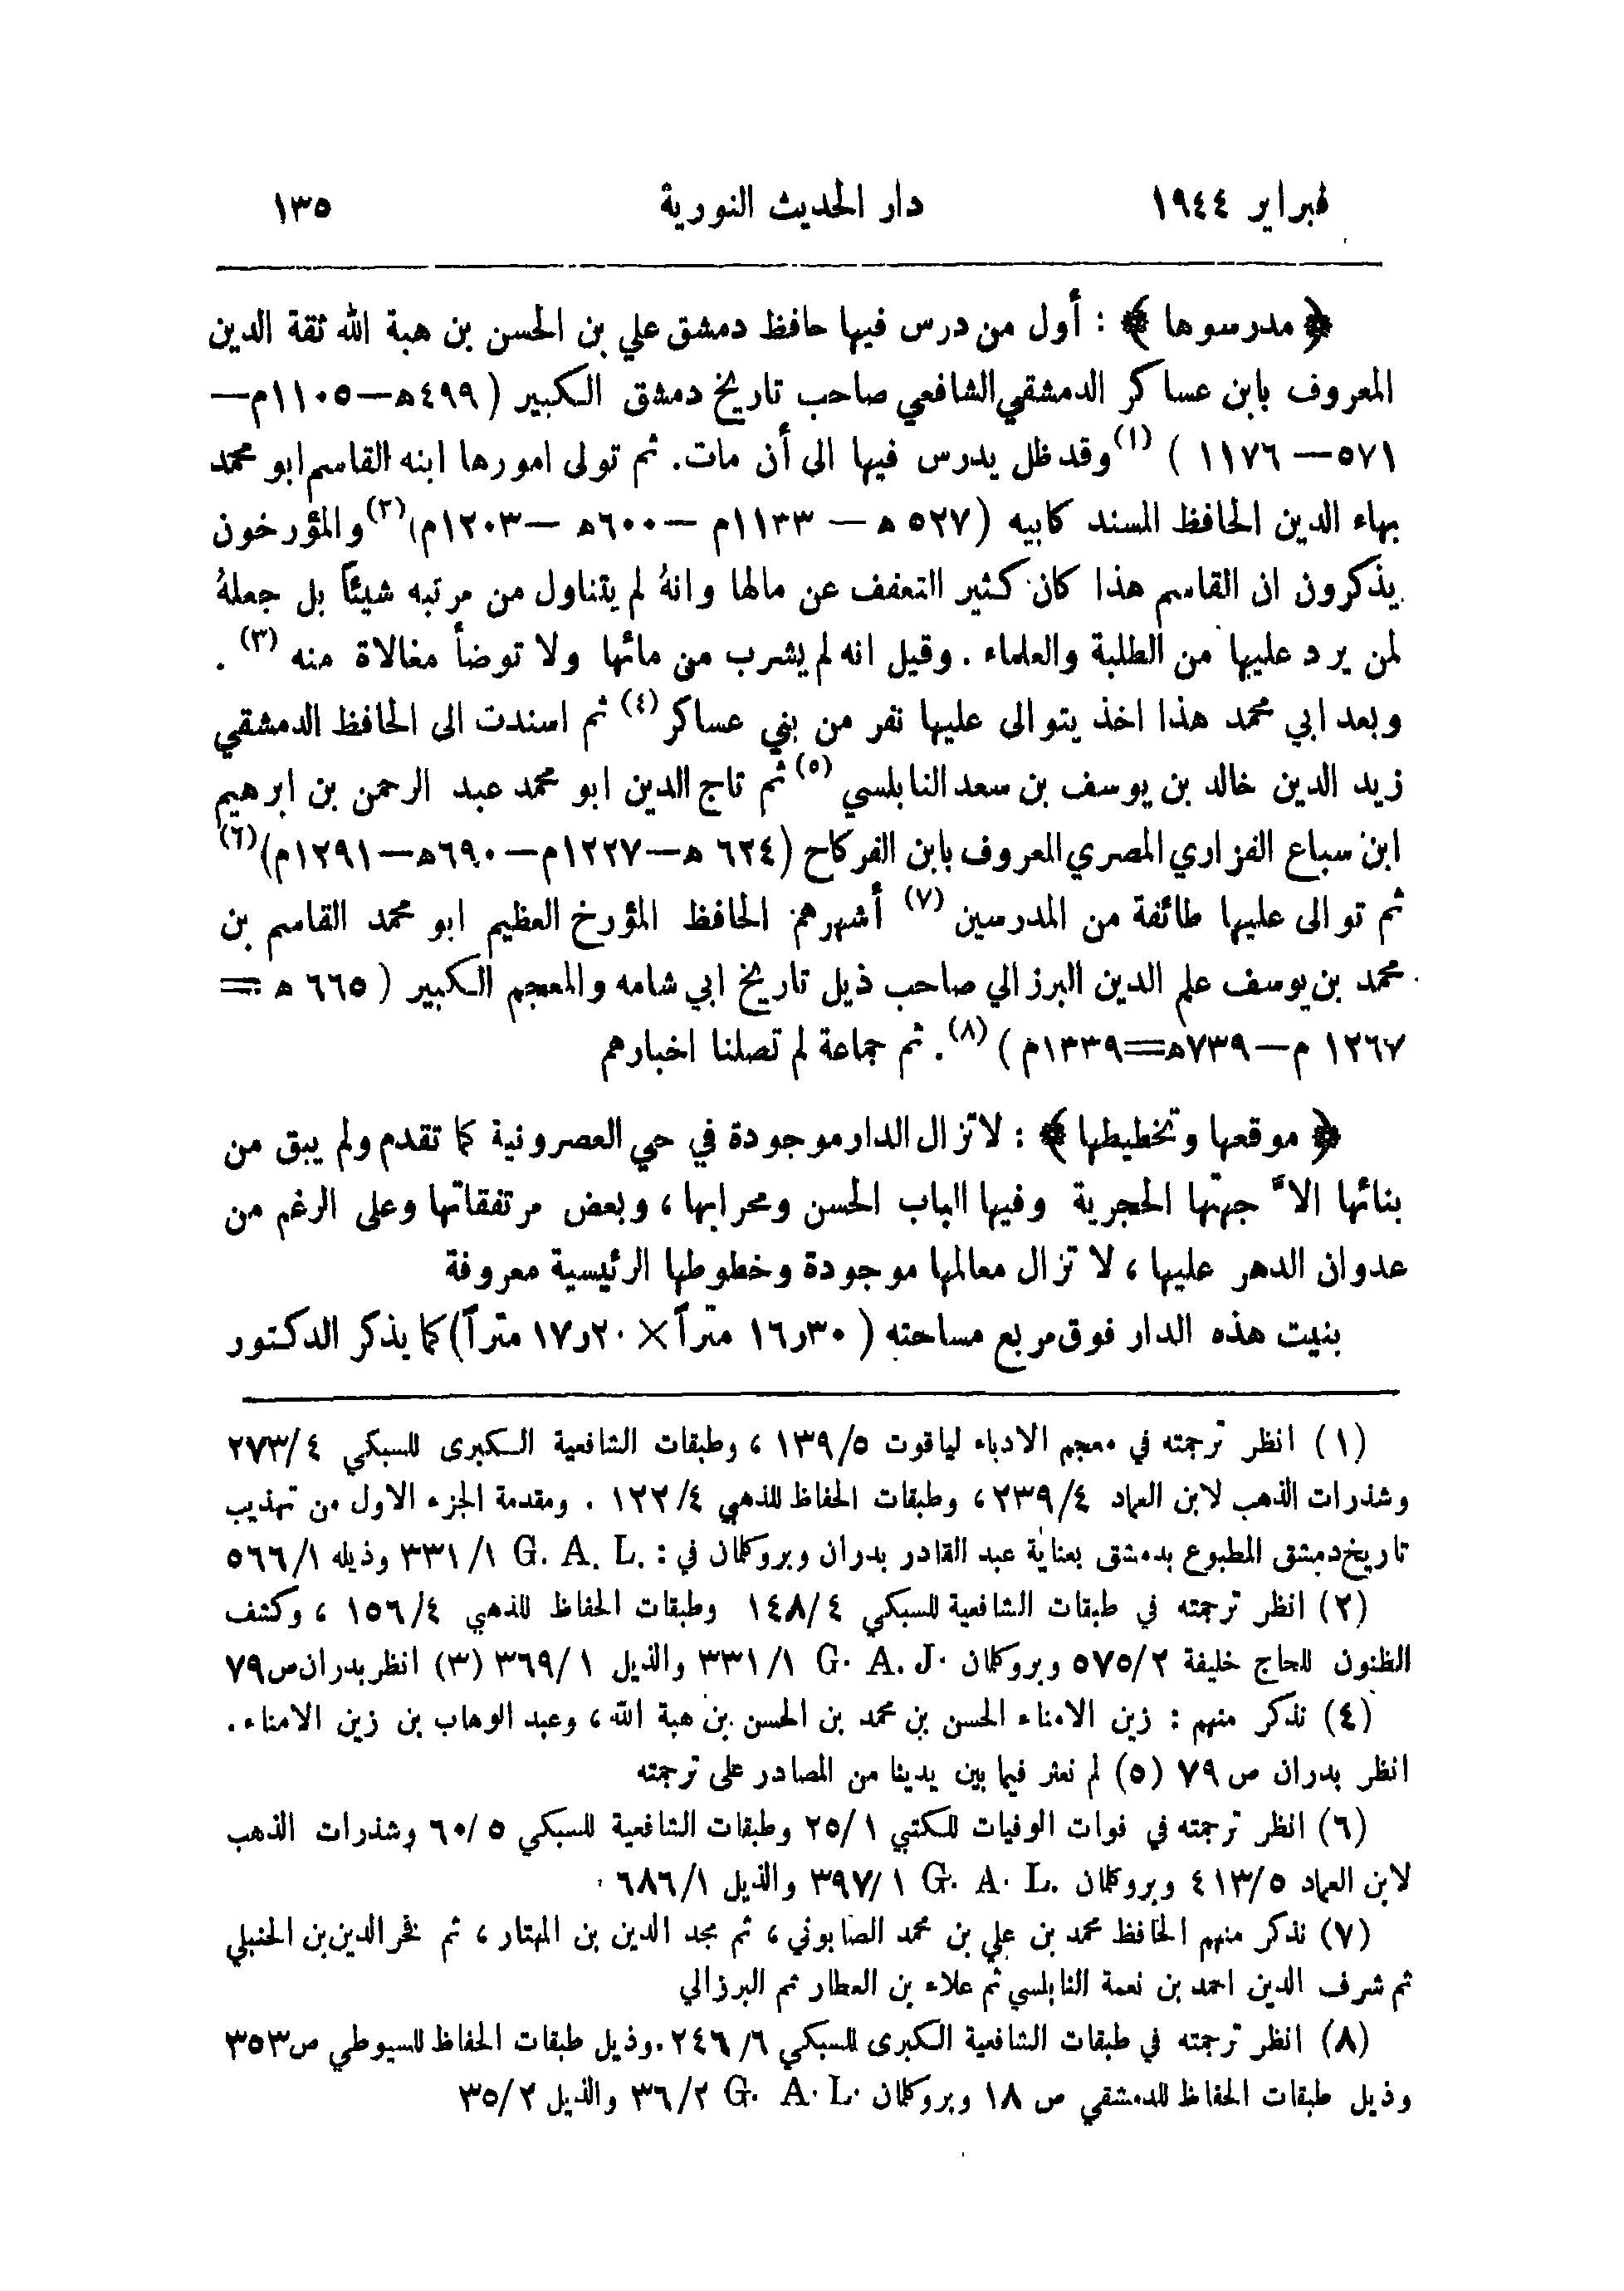 فبراير ١٩٤٤ دار الحديث النورية ١٣٥
﴿ مدرسوها ﴾ : أول من درس فيها حافظ دمشق علي بن الحسن بن هبة الله ثقة الدين
المعروف بابن عساكر الدمشقي الشافعي صاحب تاريخ دمشق الكبير ( ٤٩٩ه‍—١١٠٥م—
٥٧١—١١٧٦ ) (١) وقد ظل يدرس فيها الى أن مات. ثم تولى امورها ابنه القاسم ابو محمد
بهاء الدين الحافظ المسند كابيه (٥٢٧ ه‍ — ١١٣٣م —٦٠٠ه‍ —١٢٠٣م) (٢) والمؤرخون
يذكرون ان القاسم هذا كان كثير التعفف عن مالها وانهُ لم يتناول من مرتبه شيئاً بل جعلهُ
لمن يرد عليها من الطلبة والعلماء . وقيل انه لم يشرب من مائها ولا توضأ مغالاة منه (٣) .
وبعد ابي محمد هذا اخذ يتوالى عليها نفر من بني عساكر (٤) ثم اسندت الى الحافظ الدمشقي
زيد الدين خالد بن يوسف بن سعد النابلسي (٥) ثم تاج الدين ابو محمد عبد الرحمن بن ابرهيم
ابن سباع الفزاري المصري المعروف بابن الفركاح (٦٢٤ ه‍—١٢٢٧م—٦٩٠ه‍—١٢٩١م) (٦)
ثم توالى عليها طائفة من المدرسين (٧) أشهرهم الحافظ المؤرخ العظيم ابو محمد القاسم بن
محمد بن يوسف علم الدين البرزالي صاحب ذيل تاريخ ابي شامه والمعجم الكبير ( ٦٦٥ ه‍ =
١٢٦٧ م—٧٣٩ه‍=١٣٣٩م ) (٨) . ثم جماعة لم تصلنا اخبارهم
﴿ موقعها وتخطيطها ﴾ : لا تزال الدار موجودة في حي العصرونية كما تقدم ولم يبق من
بنائها الاَّ جهتها الحجرية وفيها الباب الحسن ومحرابها ، وبعض مرتفقاتها وعلى الرغم من
عدوان الدهر عليها ، لا تزال معالمها موجودة وخطوطها الرئيسية معروفة
بنيت هذه الدار فوق مربع مساحته ( ١٦٫٣٠ متراً × ١٧٫٢٠ متراً) كما يذكر الدكتور
(١) انظر ترجمته في معجم الادباء لياقوت ١٣٩/٥ ، وطبقات الشافعية الكبرى للسبكي ٢٧٣/٤
وشذرات الذهب لابن العماد ٢٣٩/٤ ، وطبقات الحفاظ للذهبي ١٢٢/٤ . ومقدمة الجزء الاول من تهذيب
تاريخ دمشق المطبوع بدمشق بعناية عبد القادر بدران وبروكلمان في : G. A. L. ٣٣١/١ وذيله ٥٦٦/١
(٢) انظر ترجمته في طبقات الشافعية للسبكي ١٤٨/٤ وطبقات الحفاظ للذهبي ١٥٦/٤ ، وكشف
الظنون للحاج خليفة ٥٧٥/٢ وبروكلمان G. A. J. ٣٣١/١ والذيل ٣٦٩/١ (٣) انظر بدران ص ٧٩
(٤) نذكر منهم : زين الامناء الحسن بن محمد بن الحسن بن هبة الله ، وعبد الوهاب بن زين الامناء .
انظر بدران ص ٧٩ (٥) لم نعثر فيما بين يدينا من المصادر على ترجمته
(٦) انظر ترجمته في فوات الوفيات للكتبي ٢٥/١ وطبقات الشافعية للسبكي ٦٠/٥ وشذرات الذهب
لابن العماد ٤١٣/٥ وبروكلمان G. A. L. ٣٩٧/١ والذيل ٦٨٦/١ .
(٧) نذكر منهم الحافظ محمد بن علي بن محمد الصابوني ، ثم مجد الدين بن المهتار ، ثم فخر الدين بن الحنبلي
ثم شرف الدين احمد بن نعمة النابلسي ثم علاء بن العطار ثم البرزالي
(٨) انظر ترجمته في طبقات الشافعية الكبرى للسبكي ٢٤٦/٦ . وذيل طبقات الحفاظ للسيوطي ص ٣٥٣
وذيل طبقات الحفاظ للدمشقي ص ١٨ وبروكلمان G. A. L. ٣٦/٢ والذيل ٣٥/٢